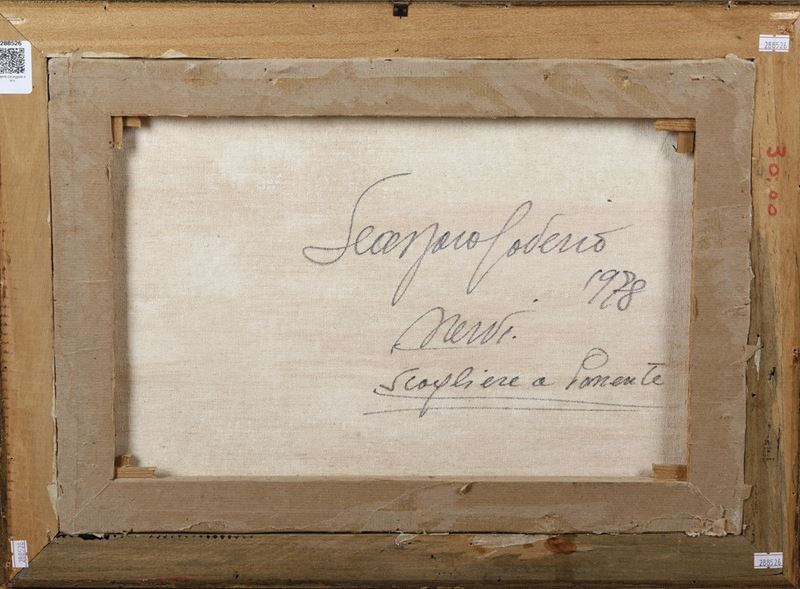 288526
288526
30,00
1978
Nervi.
Scogliere a Ponente
288526
288526